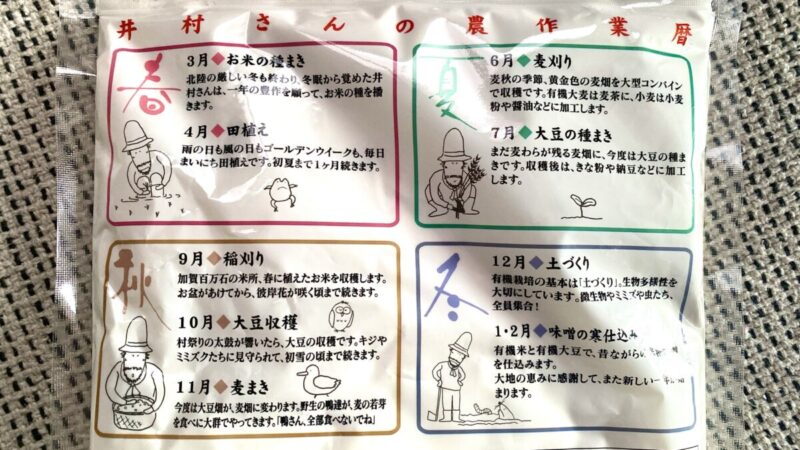 井村さんの農作業暦
春
3月◆お米の種まき
北陸の厳しい冬も終わり、冬眠から覚めた井
村さんは、一年の豊作を願って、お米の種を播
きます。
4月◆田植え
雨の日も風の日もゴールデンウイークも、毎日
まいにち田植えです。初夏まで1ヶ月続きます。
夏
6月◆麦刈り
麦秋の季節、黄金色の麦畑を大型コンバイン
で収穫です。有機大麦は麦茶に、小麦は小麦
粉や醤油などに加工します。
7月◆大豆の種まき
まだ麦わらが残る麦畑に、今度は大豆の種ま
きです。収穫後は、きな粉や納豆などに加工
します。
秋
9月◆稲刈り
加賀百万石の米所、春に植えたお米を収穫します。
お盆があけてから、彼岸花が咲く頃まで続きます。
10月◆大豆収穫
村祭りの太鼓が響いたら、大豆の収穫です。キジや
ミミズクたちに見守られて、初雪の頃まで続きます。
11月◆麦まき
今度は大豆畑が、麦畑に変わります。野生の鴨達が、麦の若芽
を食べに大群でやってきます。「鴨さん、全部食べないでね」
冬
12月◆土づくり
有機栽培の基本は「土づくり」。生物多様性を
大切にしています。微生物やミミズや虫たち、
全員集合!
1・2月◆味噌の寒仕込み
有機米と有機大豆で、昔ながらの
を仕込みます。
大地の恵みに感謝して、また新しい一
まります。